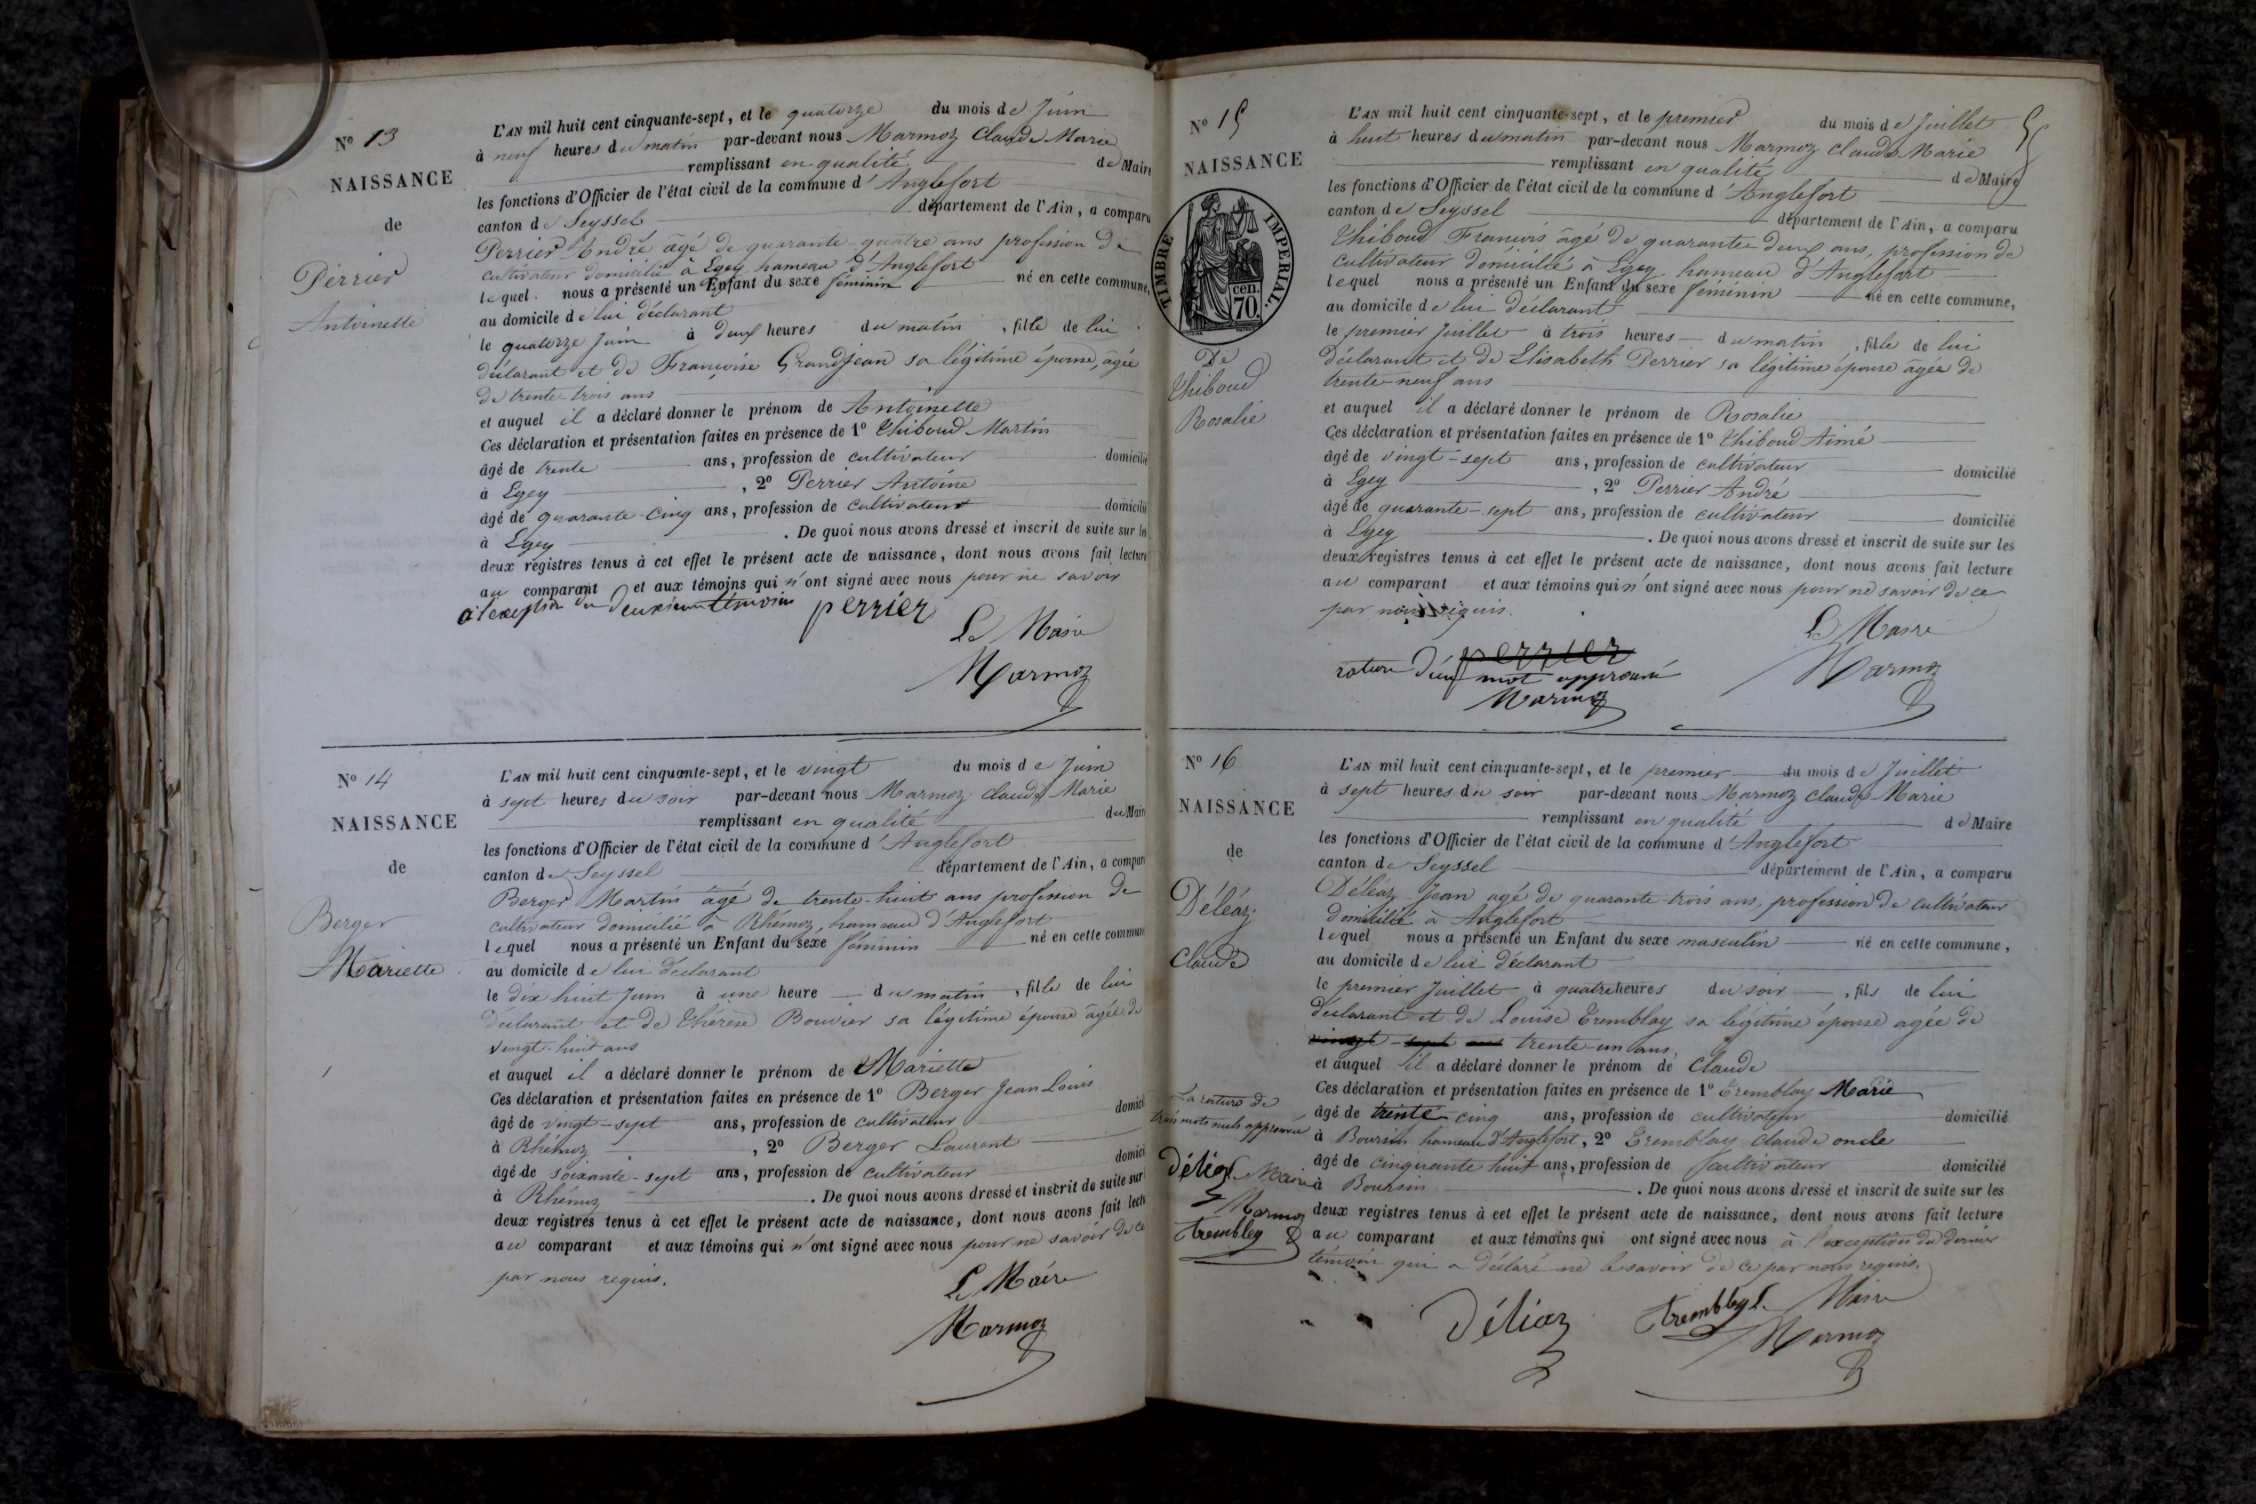 N° 13
NAISSANCE
de
Perrier
Antoinette
L'AN mil huit cent cinquante-sept, et le quatorze du mois de Juin
à neuf heures du matin par-devant nous Marmoz Claude Marie
remplissant en qualité de Maire
les fonctions d'Officier de l'état civil de la commune d'Anglefort
canton de Seyssel département de l'Ain, a comparu
Perrier André âgé de quarante-quatre ans profession de
cultivateur domicilié à Egey hameau d'Anglefort
lequel nous a présenté un Enfant du sexe féminin né en cette commune,
au domicile de lui déclarant
le quatorze Juin à deux heures du matin, fille de lui
déclarant et de Françoise Grandjean sa légitime épouse, âgée
de trente-trois ans
et auquel il a déclaré donner le prénom de Antoinette
Ces déclaration et présentation faites en présence de 1° Thiboud Martin
âgé de trente ans, profession de cultivateur domicilié
à Egey, 2° Perrier Antoine
âgé de quarante-cinq ans, profession de cultivateur domicilié
à Egey. De quoi nous avons dressé et inscrit de suite sur les
deux registres tenus à cet effet le présent acte de naissance, dont nous avons fait lecture
au comparant et aux témoins qui n'ont signé avec nous pour ne savoir
à l'exeption du deuxième témoin perrier
Le Maire
Marmoz
N° 14
NAISSANCE
de
Berger
Mariette
L'AN mil huit cent cinquante-sept, et le vingt du mois de Juin
à sept heures du soir par-devant nous Marmoz Claude Marie
remplissant en qualité du Maire
les fonctions d'Officier de l'état civil de la commune d'Anglefort
canton de Seyssel département de l'Ain, a comparu
Berger Martin âgé de trente-huit ans profession de
cultivateur domicilié à Rhémoz, hameau d'Anglefort
lequel nous a présenté un Enfant du sexe féminin né en cette commune
au domicile de lui déclarant
le dix huit Juin à une heure du matin, fille de lui
déclarant et de Thérèse Bouvier sa légitime épouse âgée de
vingt-huit ans
et auquel il a déclaré donner le prénom de Mariette
Ces déclaration et présentation faites en présence de 1° Berger Jean Louis
âgé de vingt-sept ans, profession de cultivateur domici
à Rhémoz, 2° Berger Laurent
âgé de soixante-sept ans, profession de cultivateur domici
à Rhémoz. De quoi nous avons dressé et inscrit de suite sur
deux registres tenus à cet effet le présent acte de naissance, dont nous avons fait lectu
au comparant et aux témoins qui n'ont signé avec nous pour ne savoir de ce
par nous requis.
Le Maire
Marmoz
N° 15
55
NAISSANCE
TIMBRE IMPERIAL.
70 cen.
De
Thiboud
Rosalie
L'AN mil huit cent cinquante-sept, et le premier du mois de Juillet
à huit heures du matin par-devant nous Marmoz Claude Marie
remplissant en qualité de Maire
les fonctions d'Officier de l'état civil de la commune d'Anglefort
canton de Seyssel département de l'Ain, a comparu
Thiboud François âgé de quarante deux ans, profession de
cultivateur domicilié à Egey hameau d'Anglefort
lequel nous a présenté un Enfant du sexe féminin né en cette commune,
au domicile de lui déclarant
le premier Juillet à trois heures du matin, fille de lui
déclarant et de Elisabeth Perrier sa légitime épouse âgée de
trente-neuf ans
et auquel il a déclaré donner le prénom de Rosalie
Ces déclaration et présentation faites en présence de 1° Thiboud Aimé
âgé de vingt-sept ans, profession de cultivateur domicilié
à Egey, 2° Perrier André
âgé de quarante-sept ans, profession de cultivateur domicilié
à Egey. De quoi nous avons dressé et inscrit de suite sur les
deux registres tenus à cet effet le présent acte de naissance, dont nous avons fait lecture
au comparant et aux témoins qui n'ont signé avec nous pour ne savoir de ce
par nous requis.
Le Maire
Marmoz
perrier
rature d'un mot approuvé
Marmoz
N° 16
NAISSANCE
de
Déléaz
Claude
L'AN mil huit cent cinquante-sept, et le premier du mois de Juillet
à sept heures du soir par-devant nous Marmoz Claude Marie
remplissant en qualité de Maire
les fonctions d'Officier de l'état civil de la commune d'Anglefort
canton de Seyssel département de l'Ain, a comparu
Déléaz Jean agé de quarante-trois ans, profession de cultivateur
domicilié à Anglefort
lequel nous a présenté un Enfant du sexe masculin né en cette commune,
au domicile de lui déclarant
le premier Juillet à quatre heures du soir, fils de lui
déclarant et de Louise Tremblay sa légitime épouse agée de
vingt-sept ans trente-un ans
et auquel il a déclaré donner le prénom de Claude
Ces déclaration et présentation faites en présence de 1° Tremblay Marie
âgé de trente-cinq ans, profession de cultivateur domicilié
à Boursin hameau d'Anglefort, 2° Tremblay Claude oncle
âgé de cinquante huit ans, profession de cultivateur domicilié
à Boursin. De quoi nous avons dressé et inscrit de suite sur les
deux registres tenus à cet effet le présent acte de naissance, dont nous avons fait lecture
au comparant et aux témoins qui ont signé avec nous à l'exception du dernier
témoin qui a déclaré ne le savoir de ce par nous requis.
La rature de
trois mots nuls approuvée
Déliaz Le Maire
Marmoz
trembley
Déliaz trembley Le Maire
Marmoz